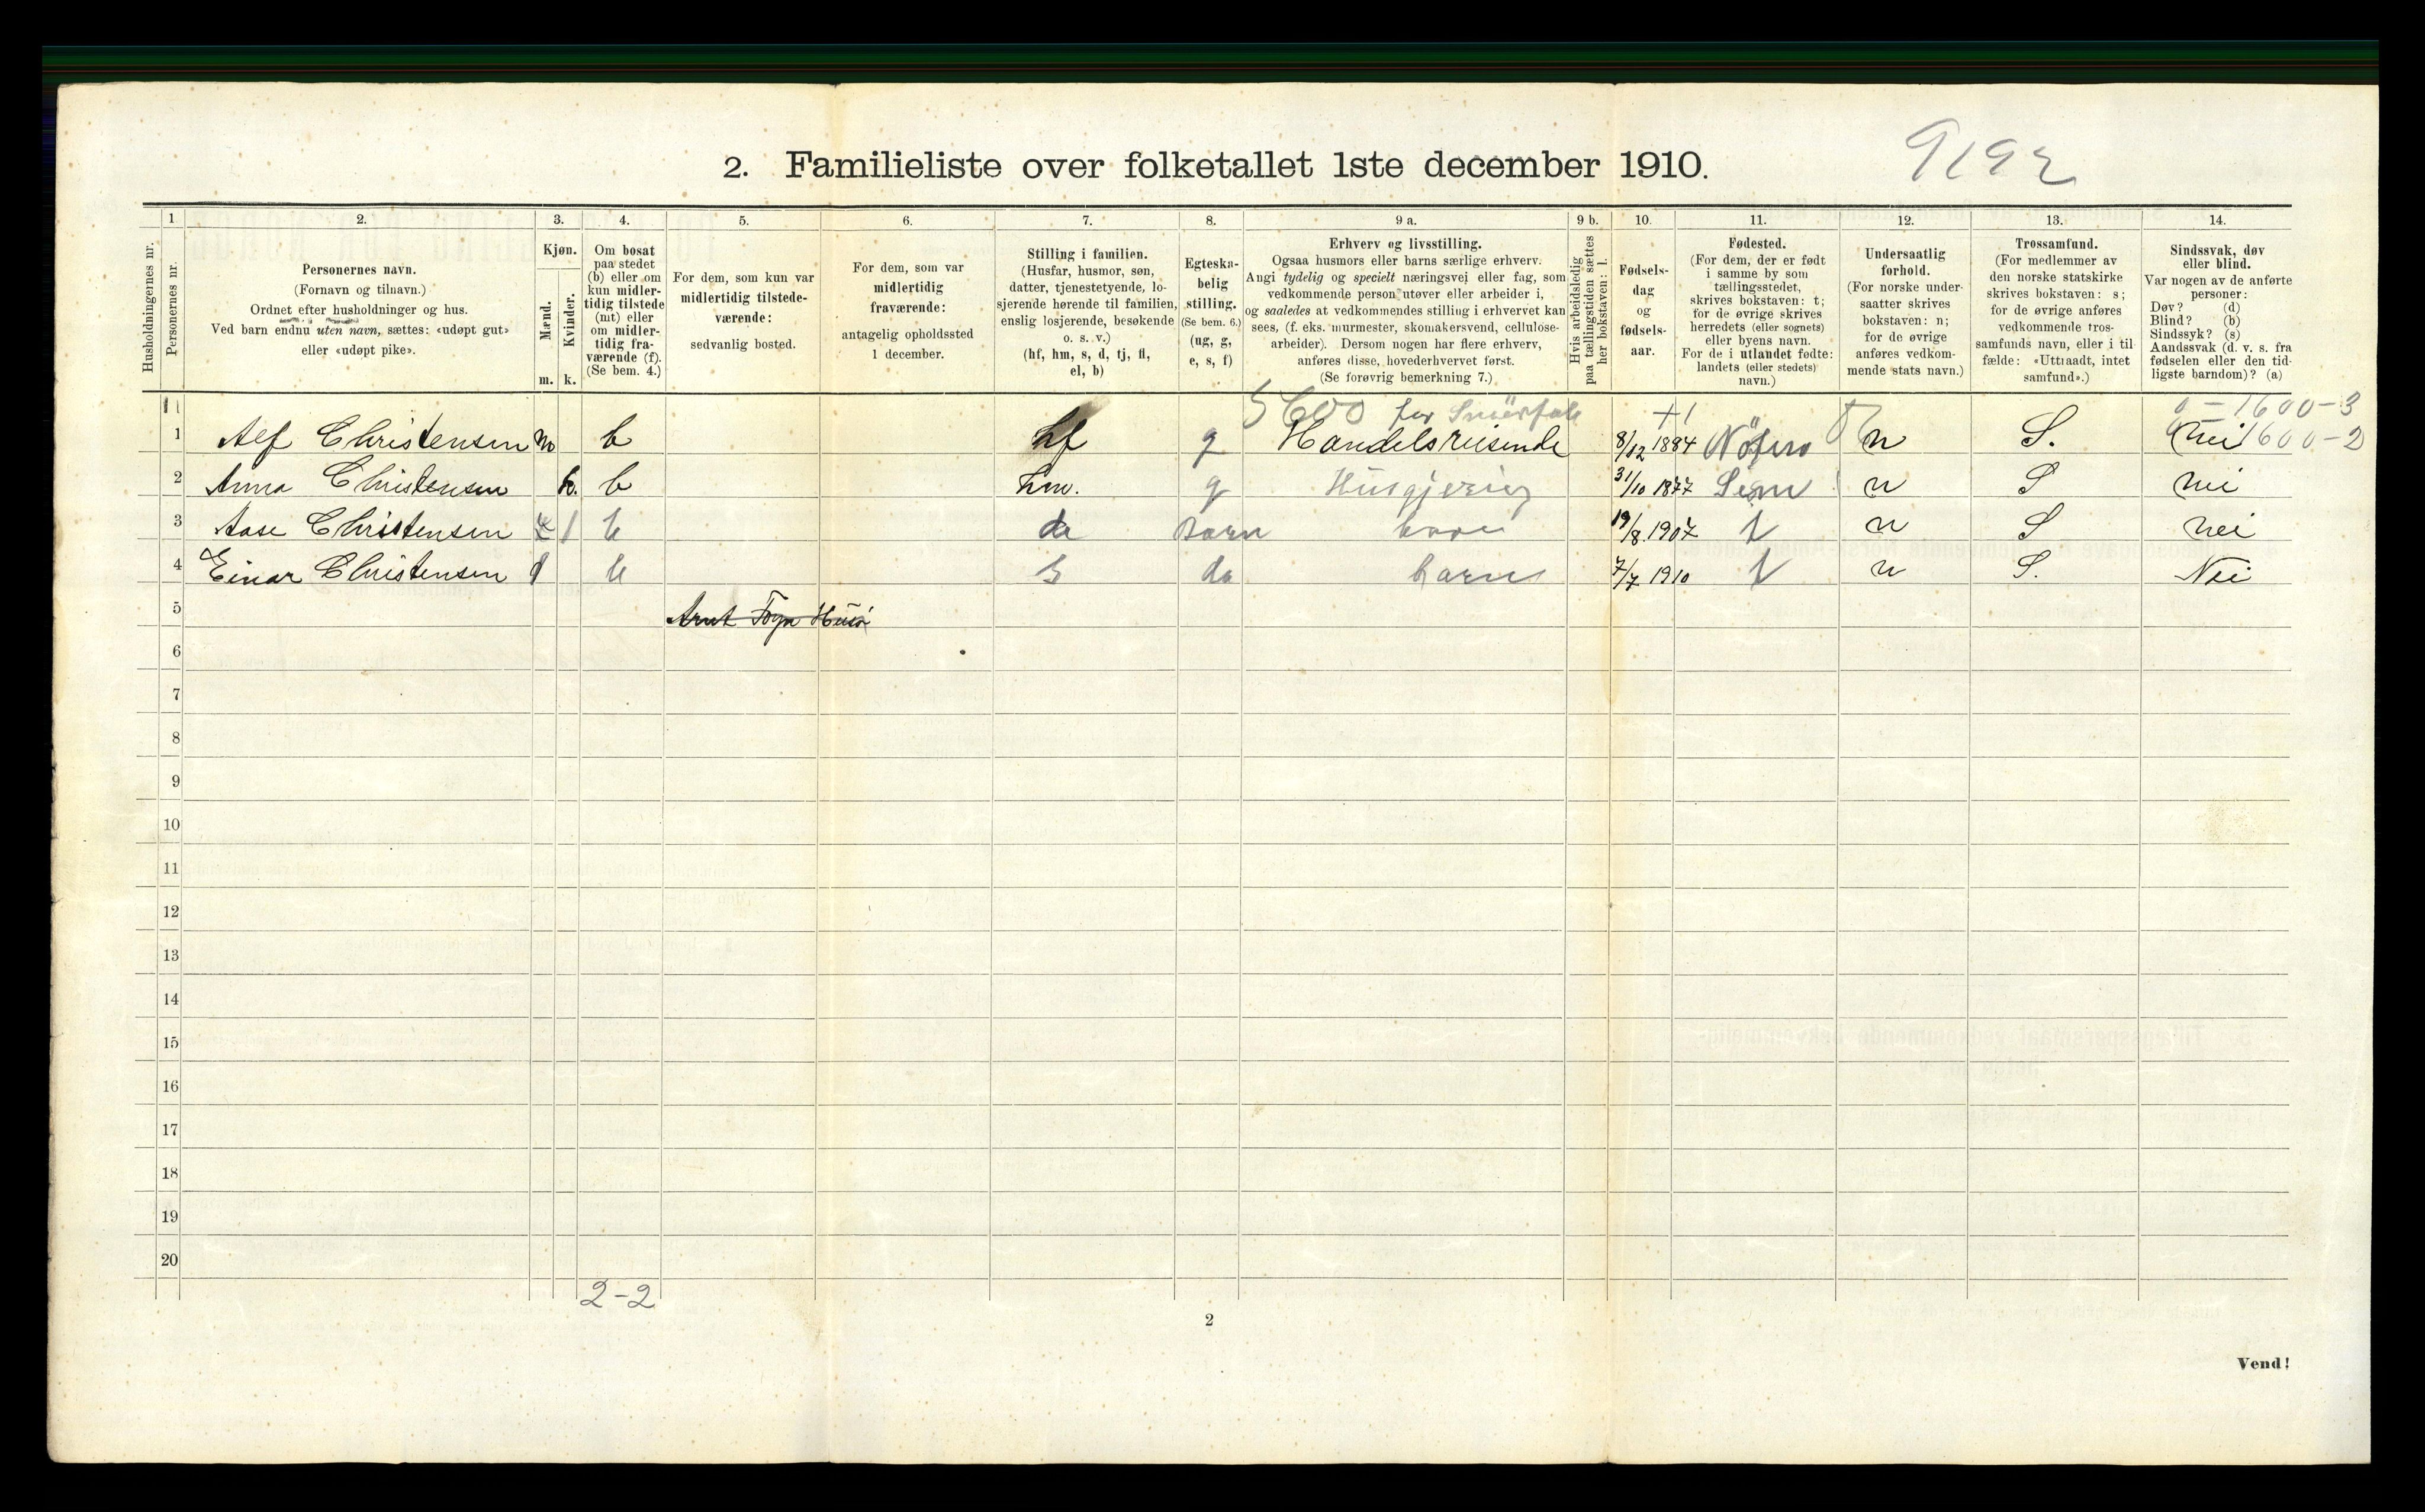 2. Familieliste over folketallet 1ste december 1910.
1 2. 3. 4. 5. 6. 7. 8. 9 a. 9 b. 10. 11. 12. 13. 14.
Husholdningernes nr.
Personernes nr.
Personernes navn.
(Fornavn og tilnavn.)
Ordnet efter husholdninger og hus.
Ved barn endnu uten navn, sættes: «udøpt gut»
eller «udøpt pike».
Kjøn.
Mænd.
Kvinder.
m. k.
Om bosat
paa stedet
(b) eller om
kun midler-
tidig tilstede
(mt) eller
om midler-
tidig fra-
værende (f).
(Se bem. 4.)
For dem, som kun var
midlertidig tilstede-
værende:
sedvanlig bosted.
For dem, som var
midlertidig
fraværende:
antagelig opholdssted
1 december.
Stilling i familien.
(Husfar, husmor, søn,
datter, tjenestetyende, lo-
sjerende hørende til familien,
enslig losjerende, besøkende
o. s. v.)
(hf, hm, s, d, tj, fl,
el, b)
Egteska-
belig
stilling.
(Se bem. 6.)
(ug, g,
e, s, f)
Erhverv og livsstilling.
Ogsaa husmors eller barns særlige erhverv.
Angi tydelig og specielt næringsvei eller fag, som
vedkommende person utøver eller arbeider i,
og saaledes at vedkommendes stilling i erhvervet kan
sees, (f. eks. murmester, skomakersvend, cellulose-
arbeider). Dersom nogen har flere erhverv,
anføres disse, hovederhvervet først.
(Se forøvrig bemerkning 7.)
Hvis arbeidsledig
paa tællingstiden sættes
her bokstaven: l.
Fødsels-
dag
og
fødsels-
aar.
Fødested.
(For dem, der er født
i samme by som
tællingsstedet,
skrives bokstaven: t;
for de øvrige skrives
herredets (eller sognets)
eller byens navn.
For de i utlandet fødte:
landets (eller stedets)
navn.)
Undersaatlig
forhold.
(For norske under-
saatter skrives
bokstaven: n;
for de øvrige
anføres vedkom-
mende stats navn.)
Trossamfund.
(For medlemmer av
den norske statskirke
skrives bokstaven: s;
for de øvrige anføres
vedkommende tros-
samfunds navn, eller i til-
fælde: «Uttraadt, intet
samfund».)
Sindssvak, døv
eller blind.
Var nogen av de anførte
personer:
Døv? (d)
Blind? (b)
Sindssyk? (s)
Aandssvak (d. v. s. fra
fødselen eller den tid-
ligste barndom)? (a)
5600 for +1 0-1600-3
1 Alf Christensen m b hf g Handelsreisende 8/12 1884 Nøtero n S. nei 1600-2
2 Anna Christensen k. b hm. g Husgjerning 31/10 1877 Sem n S nei
3 Aase Christensen 1 b d Barn barn 19/8 1907 t n S nei
4 Einar Christensen 1 b s do barn 7/7 1910 t n S. Nei
5 Arnt Husø
6
7
8
9
10
11
12
13
14
15
16
17
18
19
20
2-2
2
Vend!